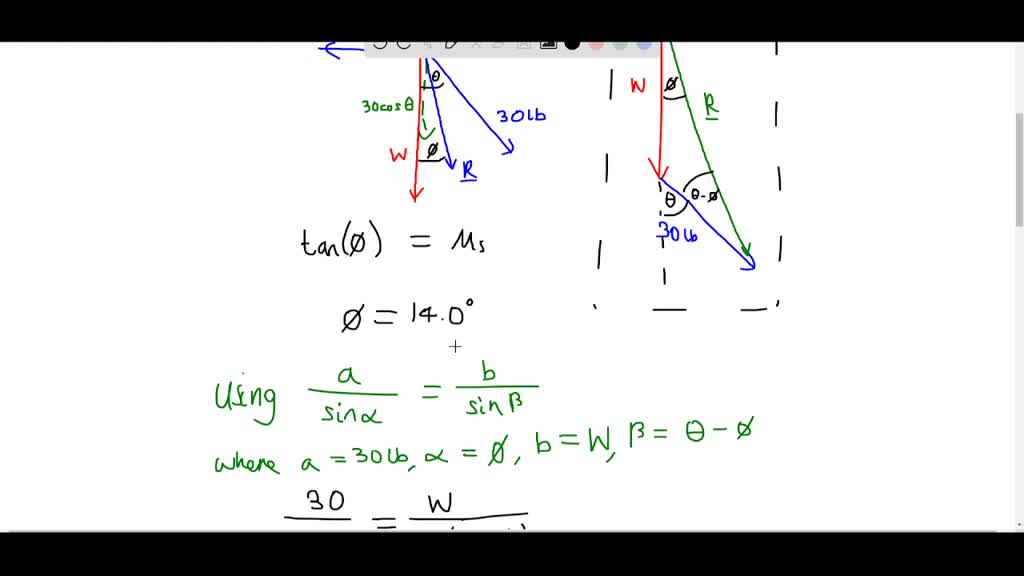 θ
30cosθ
30lb
W
ø
R
W
ø
R
θ
θ-ø
30lb
tan(ø) = Ms
ø = 14.0°
Using a/sinα = b/sinβ
where a = 30lb, α = ø, b = W, β = θ - ø
30 = W